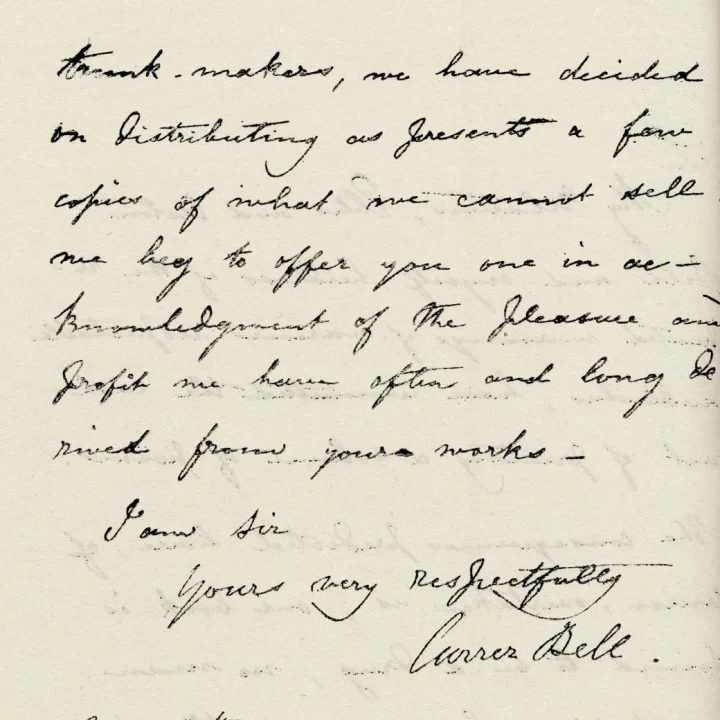 trunk-makers, we have decided
on distributing as presents a few
copies of what we cannot sell
we beg to offer you one in ac-
knowledgment of the pleasure and
profit we have often and long de
rived from yours works -
I am Sir
Yours very respectfully
Currer Bell.